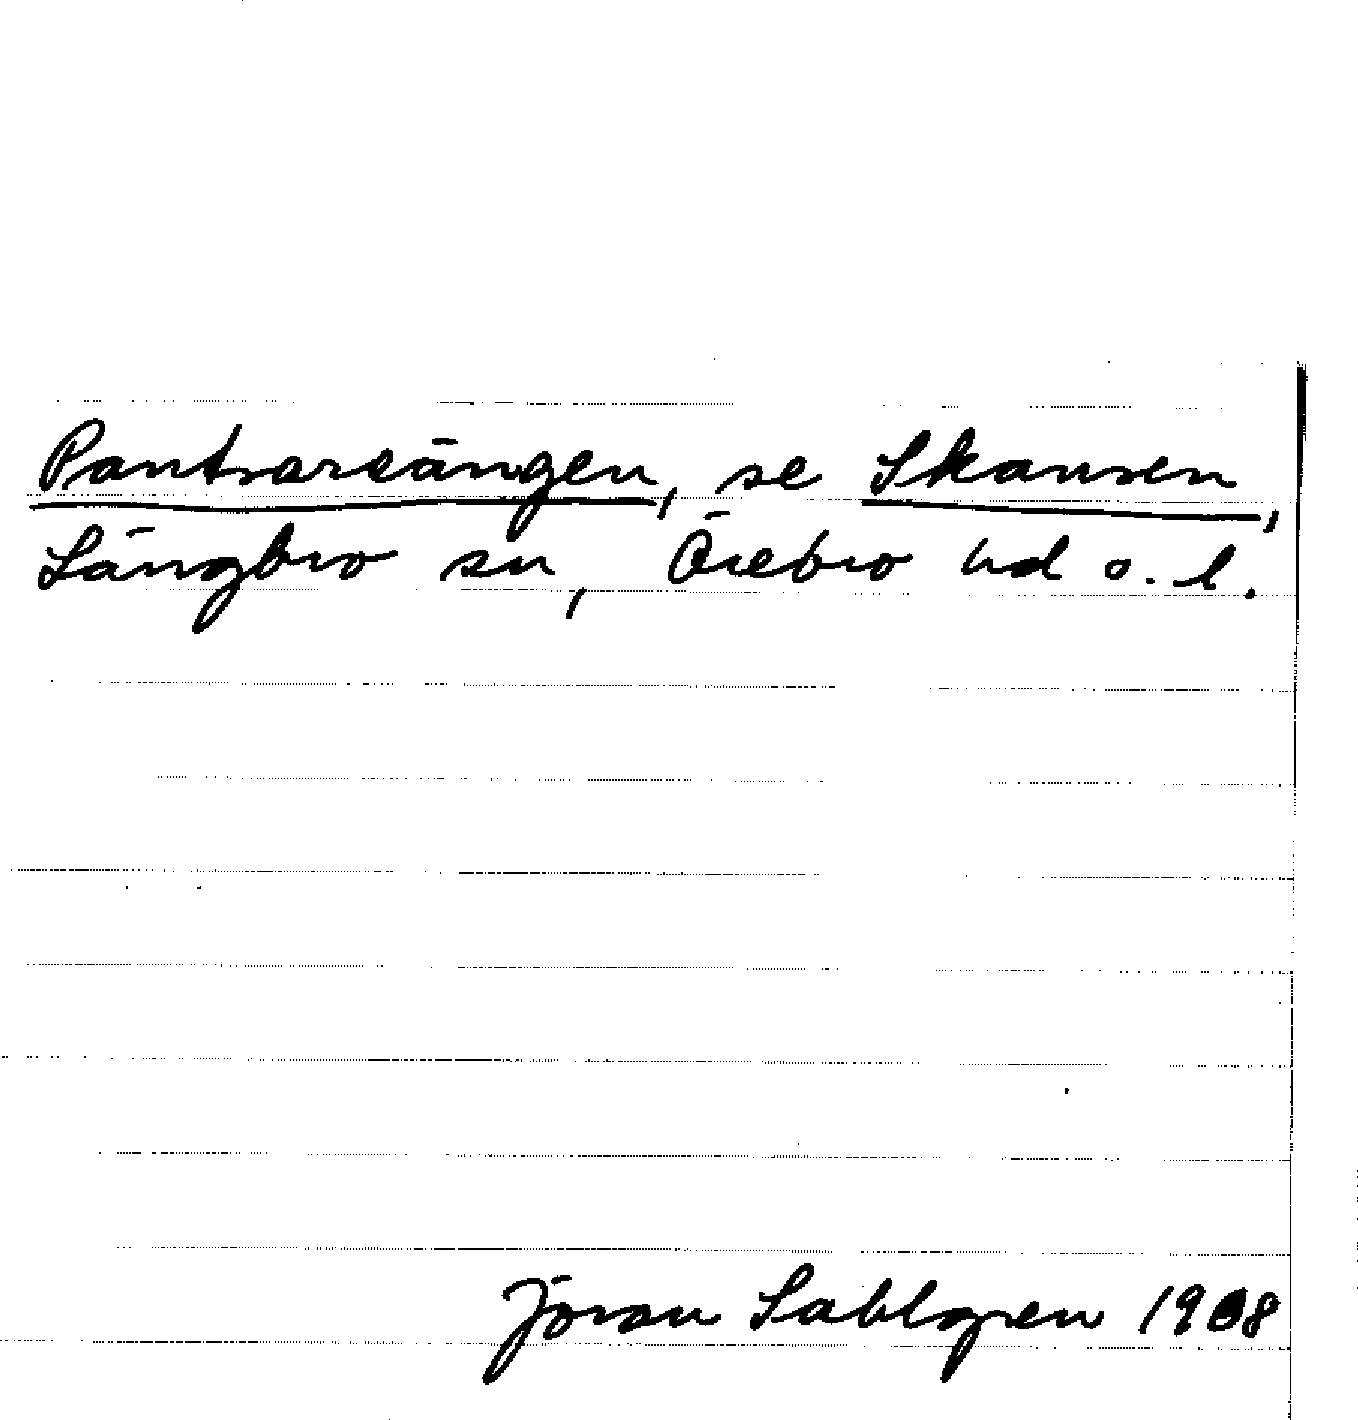 Pantsareängen, se Skansen,
Längbro sn, Örebro hd o. l.
Jöran Sahlgren 1908